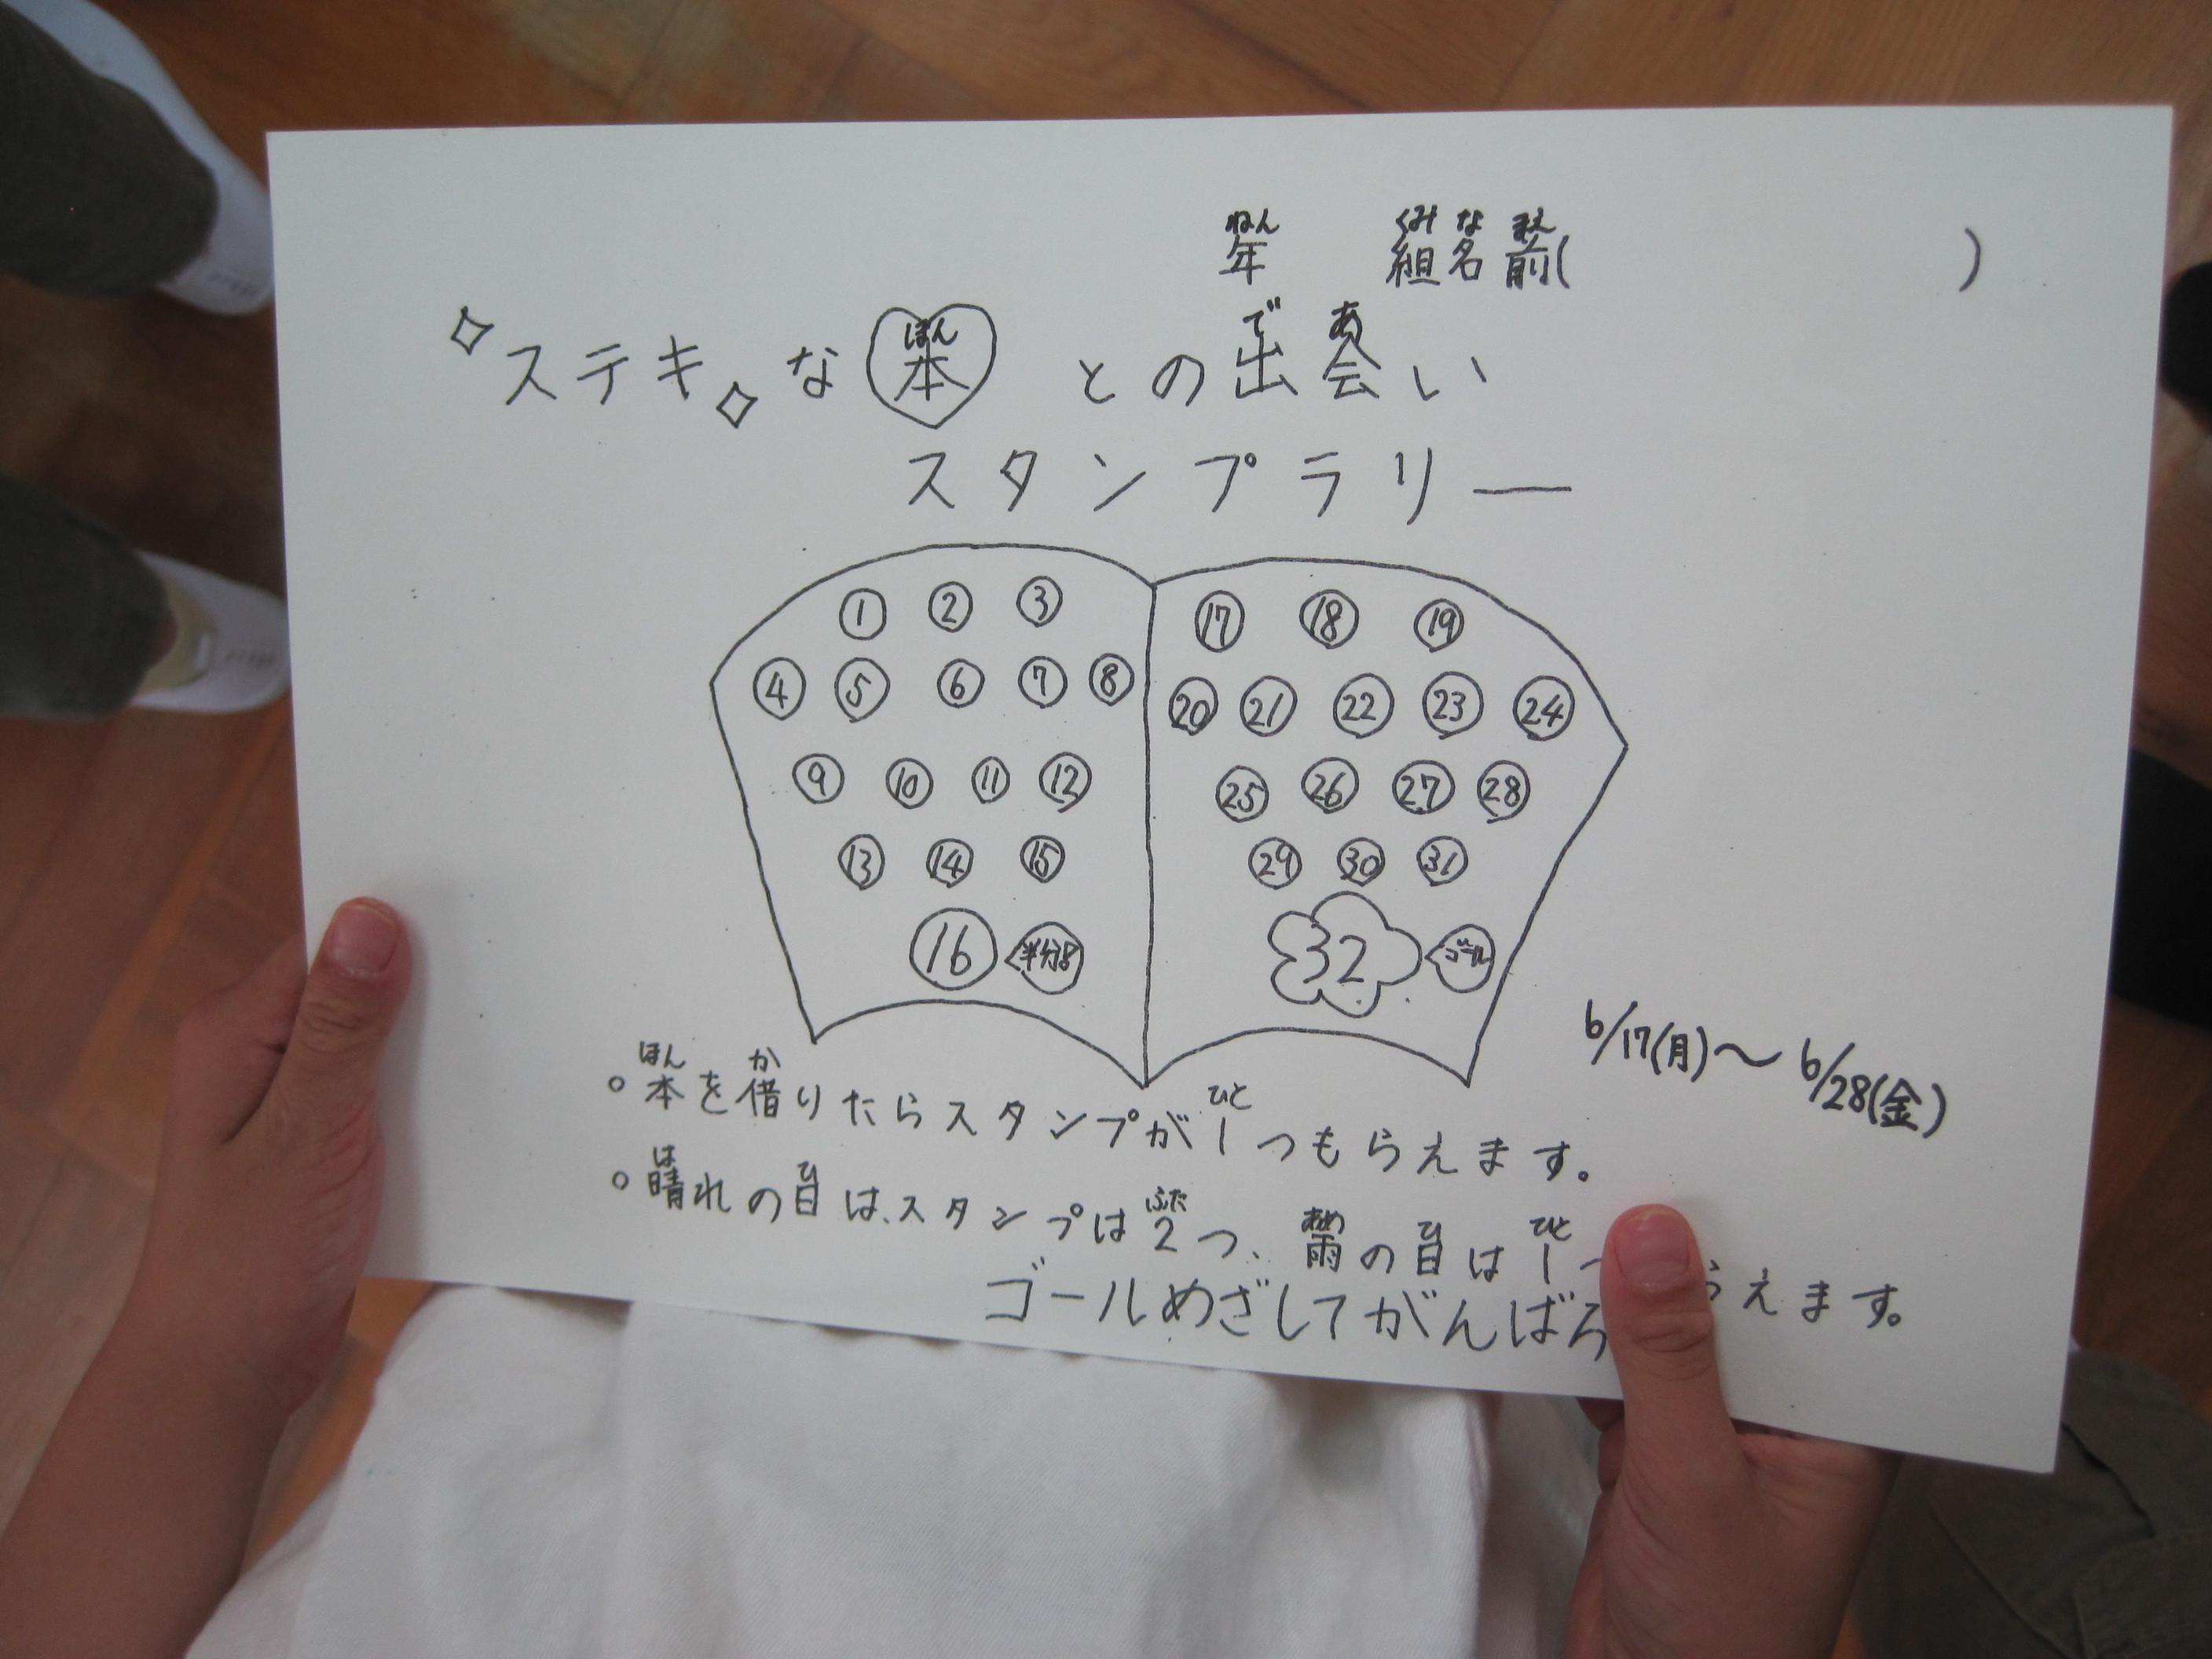 年 組名前( )
ねん くみ な まえ
ステキな本との出会い
ほん で あ
スタンプラリー
1 2 3
4 5 6 7 8
9 10 11 12
13 14 15
16 半分!
17 18 19
20 21 22 23 24
25 26 27 28
29 30 31
32 ゴール
6/17(月)〜6/28(金)
ほん か ひと
○本を借りたらスタンプが1つもらえます。
は ひ ふた あめ ひ ひと
○晴れの日は、スタンプは2つ、雨の日は1つ らえます。
ゴールめざしてがんばろ